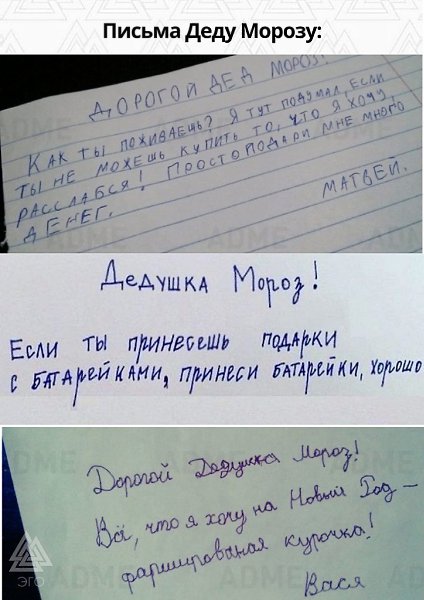 Письма Деду Морозу:
ДОРОГОЙ ДЕД МОРОЗ!
КАК ТЫ ПОЖИВАЕШЬ? Я ТУТ ПОДУМАЛ, ЕСЛИ
ТЫ НЕ МОЖЕШЬ КУПИТЬ ТО, ЧТО Я ХОЧУ,
РАССЛАБСЯ! ПРОСТО ПОДАРИ МНЕ МНОГО
ДЕНЕГ.
МАТВЕЙ.
Дедушка Мороз!
Если ты принесешь подарки
с батарейками, принеси батарейки, хорошо
Дорогой Дедушка Мороз!
Всё, что я хочу на Новый Год –
фаршированая курочка!
Вася
ЭГО
ADME